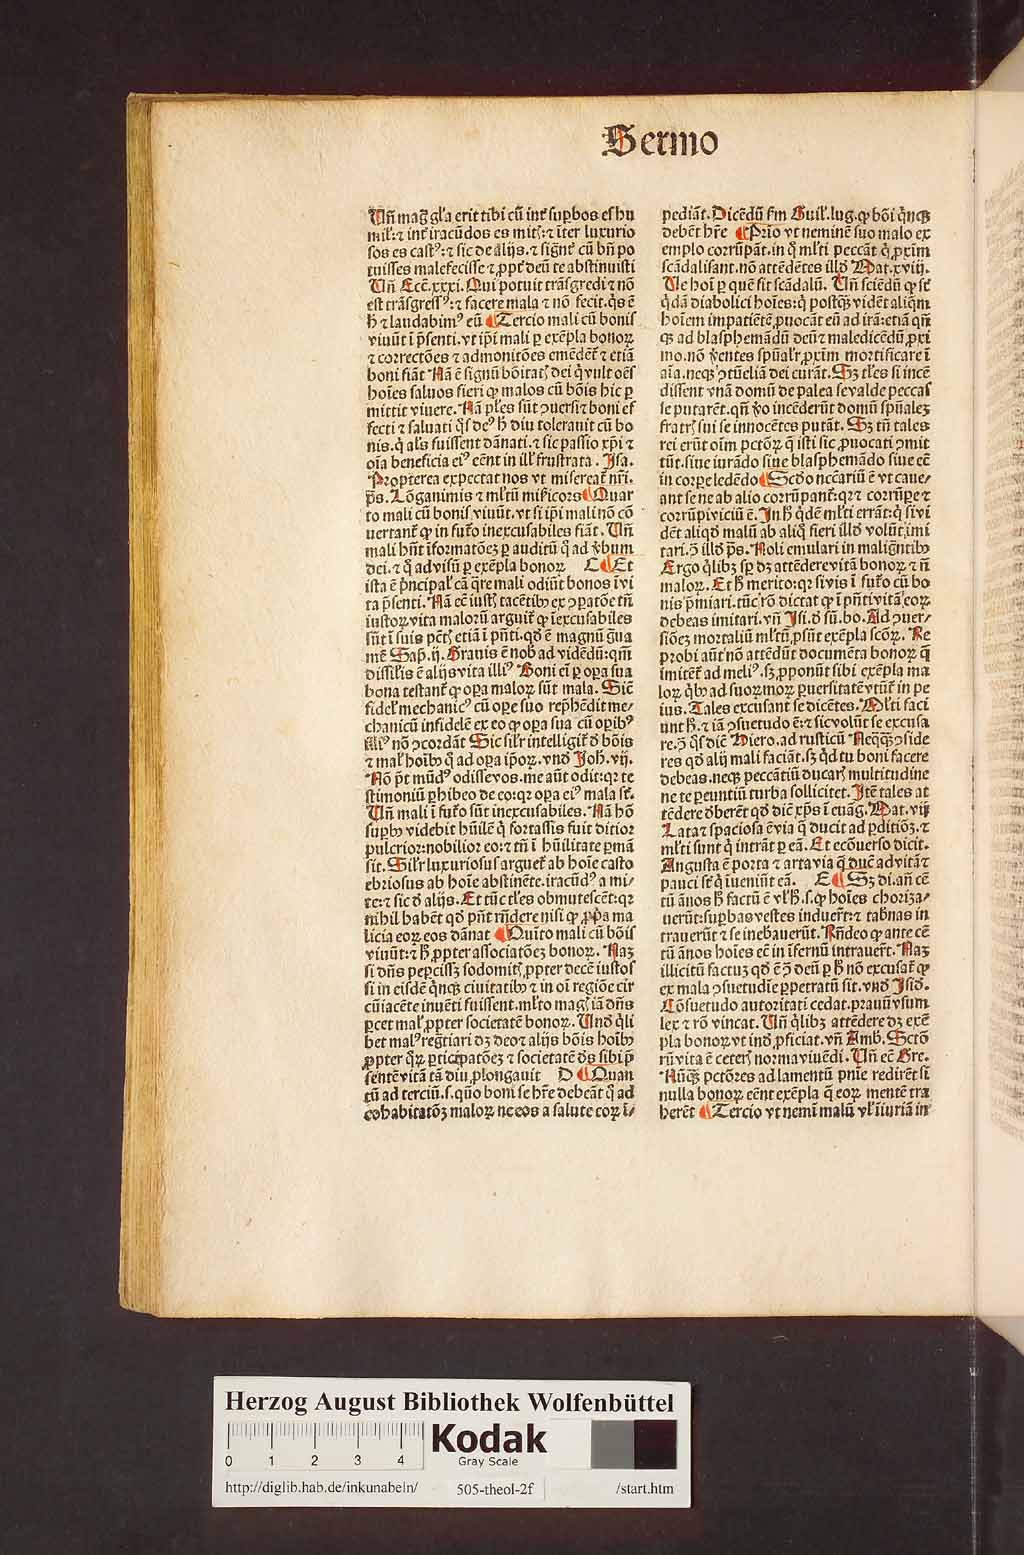 Sermo
Uñ mag̃ gl'a erit tibi cũ int' suꝑbos es hu
mil': ⁊ int' iracũdos es mit': ⁊ iter luxurio
sos es castꝰ: ⁊ sic de alijs. ⁊ signẽt cũ bñ po
tuisses malefecisse ⁊ ꝓpt' deũ te abstinuisti
Uñ Eccͣ. xxxi. Qui potuit trãsgredi ⁊ nõ
est trãsgressꝰ: ⁊ facere mala ⁊ nõ fecit. q̃s ẽ
h̃ ⁊ laudabimꝰ eũ Tercio mali cũ bonis
viuũt ĩ p̃senti. vt ip̃i mali ꝑ exẽpla bonoꝝ
⁊ correctões ⁊ admonitões emẽdẽt' ⁊ etiã
boni fiãt Nã ẽ signũ bõitat' dei q̃ vult oẽs
hoĩes saluos fieri ꝙ malos cũ bõis hic ꝑ
mittit viuere. Nã pl'es sũt ꝯuersi ⁊ boni ef
fecti ⁊ saluati q̃s deꝰ h̃ diu tolerauit cũ bo
nis. q̃ al's fuissent dãnati. ⁊ sic passio xp̃i ⁊
oĩa beneficia eiꝰ eẽnt in ill' frustrata. Isa.
Propterea expectat nos vt misereat' nr̃i.
p̃s. Lõganimis ⁊ ml'tũ mis'icors Quar
to mali cũ bonis viuũt. vt si ip̃i mali nõ cõ
uertant' ꝙ in fut'o inexcusabiles fiãt. Uñ
mali hñt ĩformatõeʒ ꝑ auditũ q̃ ad v̾bum
dei. ⁊ q̃ ad visũ ꝑ exẽpla bonoꝝ C Et
ista ẽ p̃ncipal' cã q̃re mali odiũt bonos ĩ vi
ta p̃senti. Nã eẽ iust' tacẽtibꝰ ex ꝯꝑatõe tñ
iustoꝝ vita maloꝝ arguit' ꝙ ĩexcusabiles
sũt ĩ suis pct̃' etiã ĩ pñti. qd̾ ẽ magnũ g̃ua
mẽ Sap̃. ij. Grauis ẽ nob̾ ad vidẽdũ: qm̃
dissil'is ẽ alijs vita illiꝰ Boni eĩ ꝑ oꝑa sua
bona testant' ꝙ oꝑa maloꝝ sũt mala. Sicͣ
fidel' mechanicꝰ cũ oꝑe suo rep̃hẽdit me/
chanicũ infidelẽ ex eo ꝙ oꝑa sua cũ oꝑibꝰ
illiꝰ nõ ꝯcordãt Sic sil'r intelligit' d̾ bõis
⁊ mal' hoĩbꝰ q̃ ad oꝑa ip̃oꝝ. vnd̾ Joh̃. vij.
Nõ p̃t mũdꝰ odisse vos. me aũt odit: qꝛ te
stimoniũ ꝑhibeo de eo: qꝛ oꝑa eiꝰ mala st'.
Uñ mali ĩ fut'o sũt inexcusabiles. Nã hõ
suꝑbꝰ videbit hũilẽ q̃ fortassis fuit ditior
pulcrior: nobilior eo: ⁊ tñ ĩ hũilitate ꝑmã
sit. Sil'r luxuriosus arguet' ab hoĩe casto
ebriosus ab hoĩe abstinẽte. iracũdꝰ a mi/
te: ⁊ sic d̾ alijs. Et tũc tl'es obmutescẽt: qꝛ
nihil habẽt qd̾ pñt rñdere nisi ꝙ ꝓp̃a ma
licia eoꝝ eos dãnat Quĩto mali cũ bõis
viuũt: ⁊ h̃ ꝓpter associatõeʒ bonoꝝ. Naʒ
si dñs peꝑcissʒ sodomit' ꝓpter decẽ iustos
si in eisdẽ q̃nqꝫ ciuitatibꝰ ⁊ in oĩ regiõe cir
cũiacẽte inuẽti fuissent. ml'to mag' iã dñs
ꝑcet mal' ꝓpter societatẽ bonoꝝ. Und̾ q̃li
bet malꝰ reg̃tiari dʒ deo ⁊ alijs bõis hoĩbꝰ
ꝓpter q̃ꝝ ꝑticipatõeʒ ⁊ societatẽ d̾s sibi p̃
sentẽ vitã tã diu ꝓlongauit D Quan
tũ ad terciũ. s. quõ boni se hr̃e debeãt q̃ ad
cohabitatõʒ maloꝝ ne eos a salute eoꝝ ĩ/
pediãt. Dicẽdũ ẜm Guil'. lug. ꝙ bõi q̃nqꝫ
debẽt hr̃e Prĩo vt neminẽ suo malo ex
emplo corrũpãt. in q̃ ml'ti peccãt q̃ ꝓxĩm
scãdalisant. nõ attẽdẽtes illd̾ Mat. xviij.
Ue hoĩ ꝑ quẽ fit scãdalũ. Uñ sciẽdũ ꝙ st'
q̃dã diabolici hoĩes: q̃ postqꝫ vidẽt aliq̃m
hoĩem impatiẽtẽ ꝓuocãt eũ ad irã: etiã qñ
qꝫ ad blasphemãdũ deũ ⁊ maledicẽdũ ꝓxi
mo. nõ v̾entes spũal'r ꝓxĩm mortificare ĩ
aĩa. neqꝫ ꝯtũeliã dei curãt. Sʒ tl'es si incẽ
dissent vnã domũ de palea se valde peccas
se putarẽt. qñ v̾o incẽderũt domũ spũaleʒ
fratr' si se innocẽtes putãt. Sʒ tñ tales
rei erũt oĩm pctõꝝ q̃ isti sic ꝓuocati ꝯmit
tũt. siue iurãdo siue blasphemãdo siue eẽ
in corpe ledẽdo Scd̾o necc̃ariũ ẽ vt caue/
ant se ne ab alio corrũpant': qꝛ ⁊ corrũpe ⁊
corrũpi viciũ ẽ. In h̃ q̃dẽ ml'ti errãt: q̃ si vi
dẽt aliqd̾ malũ ab aliq̃ fieri illd̾ volũt imi
tari. ꝯ̃ illd̾ p̃s. Noli emulari in malig̃ntibꝰ
Ergo q̃libʒ sꝑ dʒ attẽdere vitã bonoꝝ ⁊ ñ
maloꝝ. Et h̃ merito: qꝛ si vis ĩ fut'o cũ bo
nis p̃miari. tũc rõ dictat ꝙ ĩ pñti vitã eoꝝ
debeas imitari. vñ Isi. d̾ sũ. bo. Ad ꝯuer/
siõeʒ mortaliũ ml'tũ ꝓsũt exẽpla scõꝝ. Re
probi aũt nõ attẽdũt documẽta bonoꝝ q̃
imitẽt' ad meliꝰ. sʒ ꝓponũt sibi exẽpla ma
loꝝ q̃bꝰ ad suoꝝ moꝝ ꝑuersitatẽ vtũt' in pe
ius. Tales excusant se dicẽtes. Ml'ti faci
unt h̃. ⁊ iã ꝯsuetudo ẽ: ⁊ sic volũt se excusa
re. ꝯ̃ q̃s dic̃ Hiero. ad rusticũ Neqꝫqꝫ ꝯside
res qd̾ alij mali faciãt. sʒ q̃d tu boni facere
debeas. neqꝫ peccãtiũ ducar' multitudine
ne te ꝑeuntiũ turba sollicitet. Itẽ tales at
tẽdere d̾berẽt qd̾ dic̃ xp̃s ĩ euãg. Mat. vij
Lata ⁊ spaciosa ẽ via q̃ ducit ad ꝑditiõʒ. ⁊
ml'ti sunt q̃ intrãt ꝑ eã. Et ecõuerso dicit.
Angusta ẽ porta ⁊ arta via q̃ duc̃ ad vitã ⁊
pauci st' q̃ ĩueniũt eã. E Sʒ di. añ cẽ
tũ ãnos h̃ factũ ẽ vl' h̃. s. ꝙ hoĩes choriza/
uerũt: suꝑbas vestes induer̃t: ⁊ tab̾nas in
trauerũt ⁊ se ineb̾auerũt. Rñdeo ꝙ ante cẽ
tũ ãnos hoĩes eẽ in ĩfernũ intrauer̃t. Naʒ
illicitũ factuʒ qd̾ ẽ ꝯ̃ deũ ꝑ h̃ nõ excusat' ꝙ
ex mala ꝯsuetudĩe ꝑpetratũ sit. vnd̾ Isid̾.
Cõsuetudo autoritati cedat. prauũ vsum
lex ⁊ rõ vincat. Uñ q̃libʒ attẽdere dʒ exẽ
pla bonoꝝ vt ind̾ ꝓficiat. vñ Amb̾. Sctõ
rũ vita ẽ ceter' norma viuẽdi. Uñ eẽ Gre.
Nũqꝫ pctõres ad lamentũ pnĩe redirẽt si
nulla bonoꝝ eẽnt exẽpla q̃ eoꝝ mentẽ tra
herẽt Tercio vt nemĩ malũ vl' ĩiuriã in
Herzog August Bibliothek Wolfenbüttel
0 1 2 3 4
Kodak
Gray Scale
http://diglib.hab.de/inkunabeln/ 505-theol-2f /start.htm